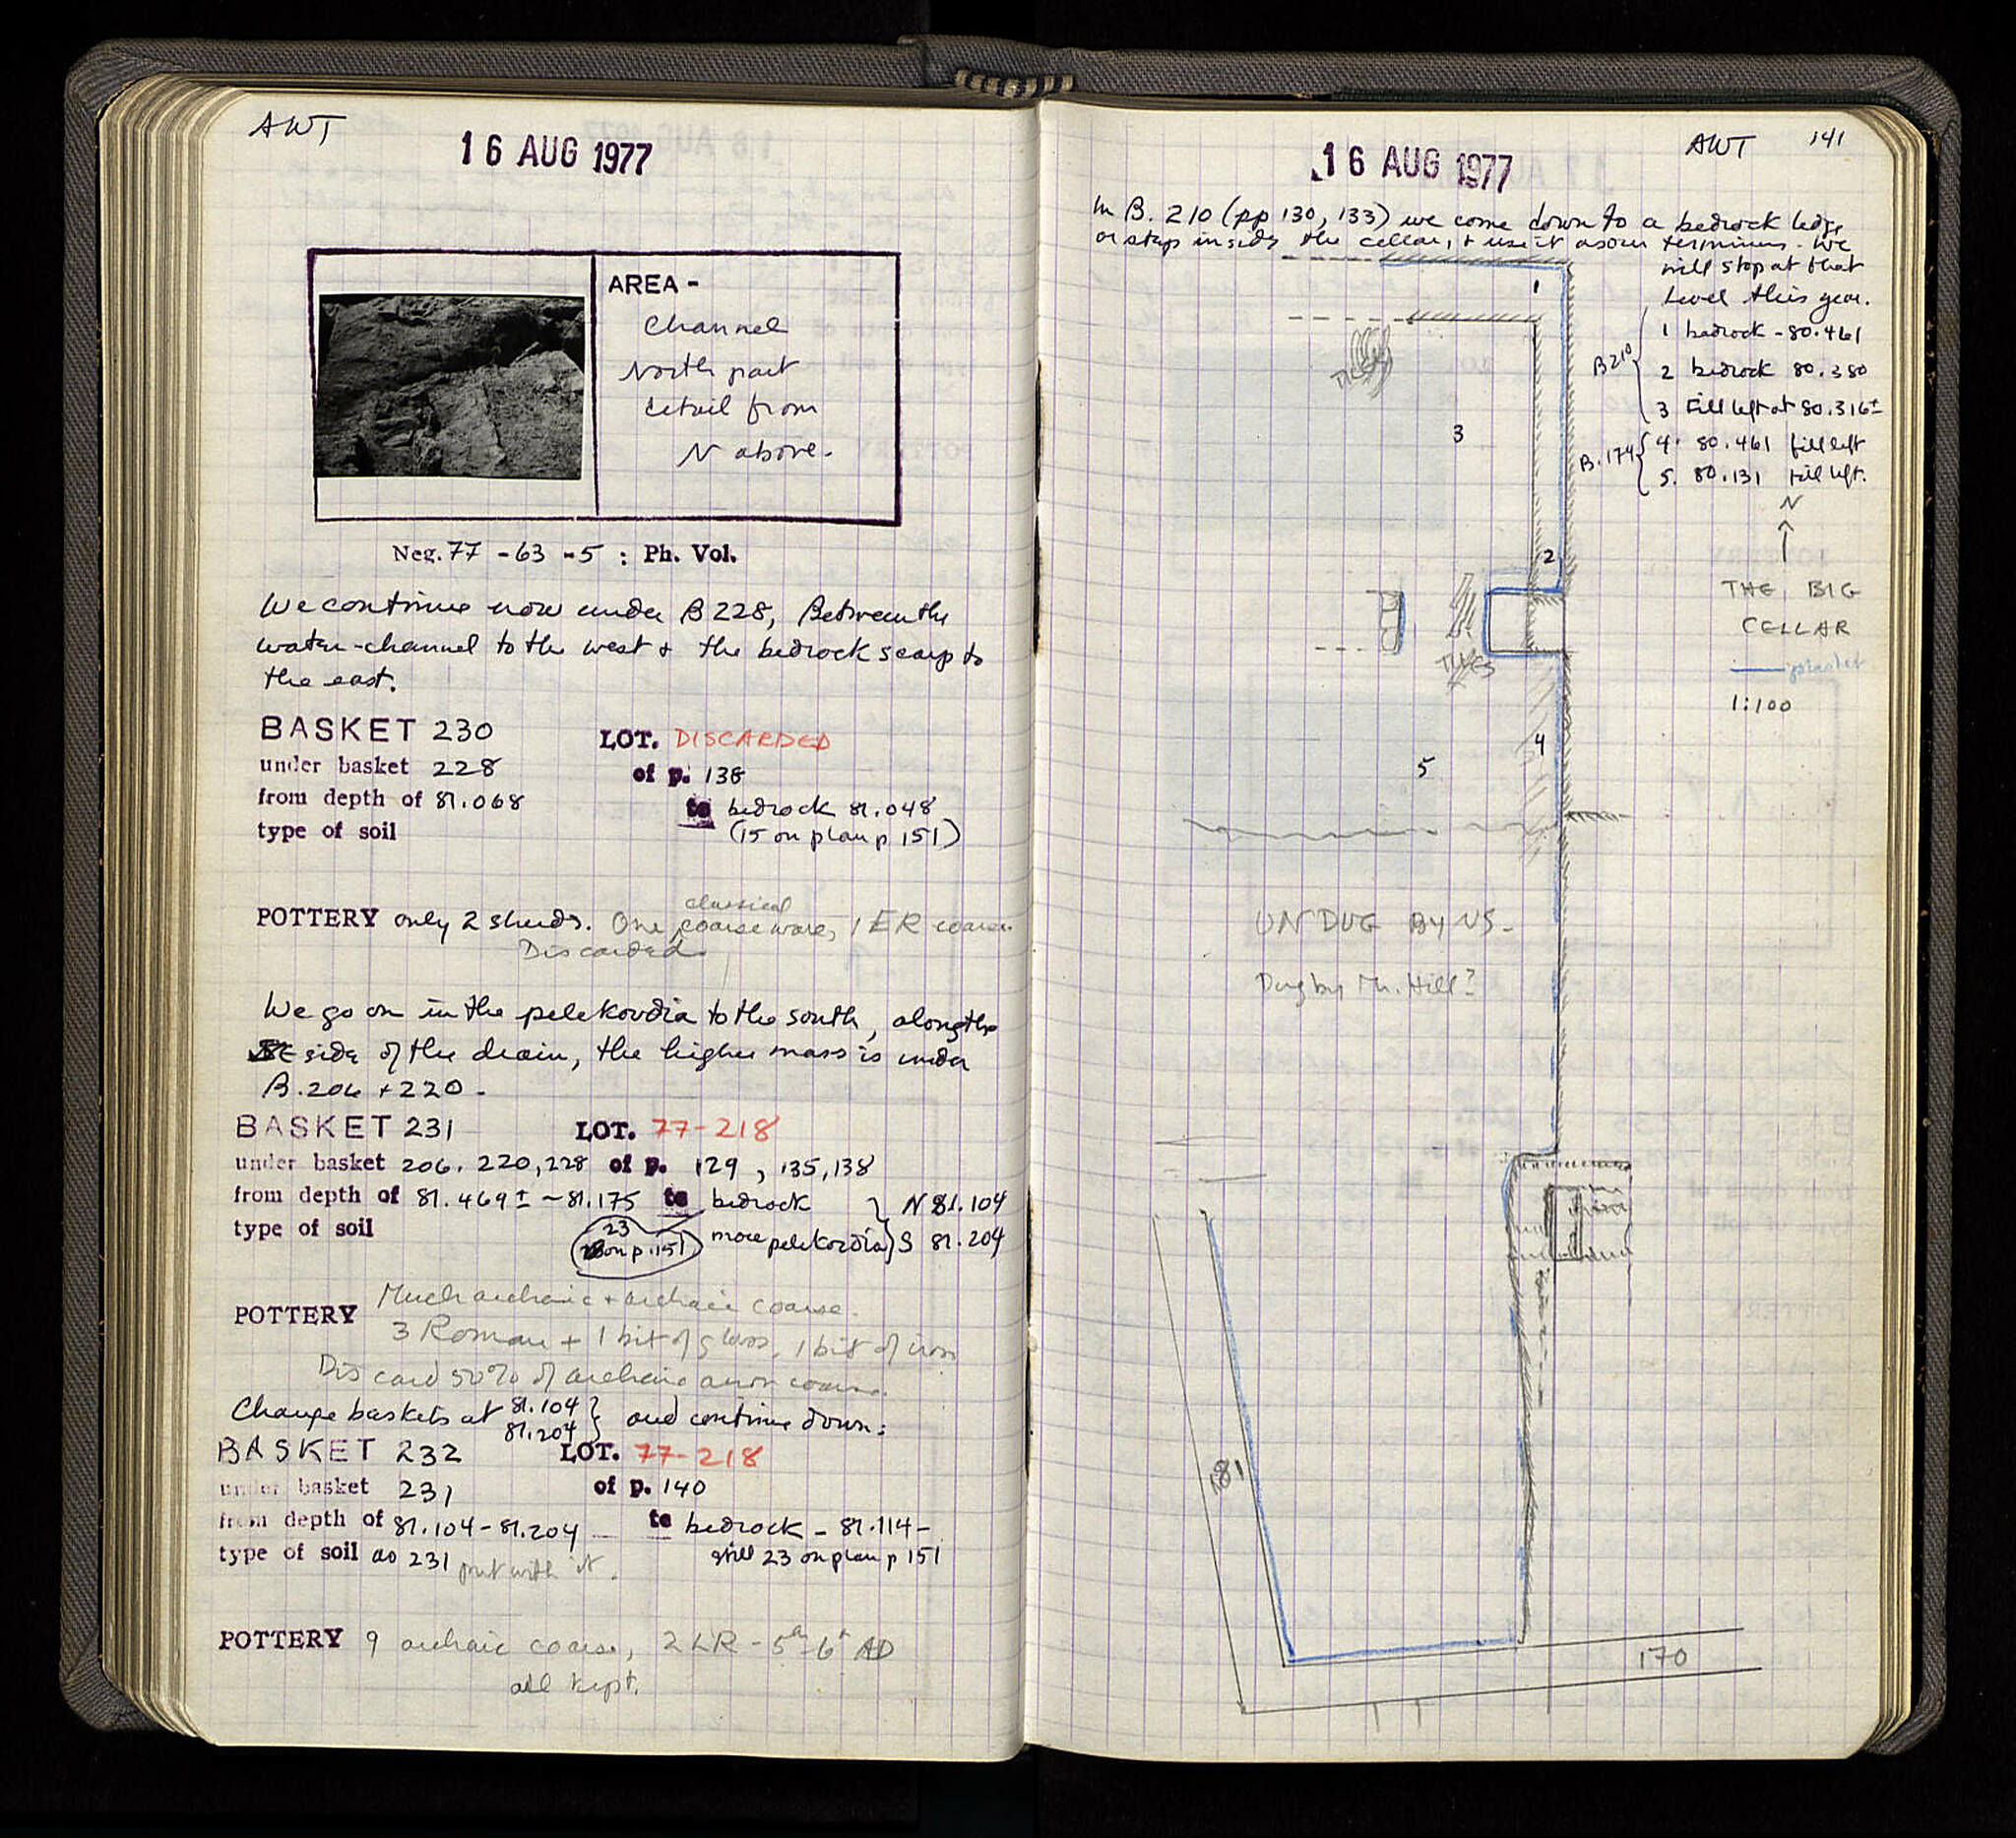 AWT
16 AUG 1977
AREA -
Channel
North part
detail from
N above.
Neg. 77 - 63 - 5 : Ph. Vol.
We continue now under B 228, Between the
water-channel to the west + the bedrock scarp to
the east.
BASKET 230 LOT. DISCARDED
under basket 228 of p. 138
from depth of 81.068 to bedrock 81.048
type of soil (15 on plan p 151)
classical
POTTERY only 2 sherds. One coarse ware, 1 ER coarse.
Discarded
We go on in the pelekoudia to the south, along the
E side of the drain, the higher mass is under
B. 206 + 220 -
BASKET 231 LOT. 77-218
under basket 206, 220, 228 of p. 129, 135, 138
from depth of 81.469± ~ 81.175 to bedrock } N 81.104
type of soil 23 on p. 151 more pelekoudia } S 81.204
Much archaic + archaic coarse.
POTTERY
3 Roman + 1 bit of glass, 1 bit of iron
Discard 50% of archaic coarse.
Change baskets at 81.104 } and continue down:
81.204
BASKET 232 LOT. 77-218
under basket 231 of p. 140
from depth of 81.104 - 81.204 to bedrock - 81.114 -
type of soil as 231 put with it. still 23 on plan p 151
POTTERY 9 archaic coarse, 2 LR - 5th-6th AD
all kept.
16 AUG 1977
AWT 141
In B. 210 (pp 130, 133) we come down to a bedrock ledge
or step inside the cellar, + use it as our terminus. We
will stop at that
level this year.
B210 { 1 bedrock - 80.461
2 bedrock 80.380
3 Fill left at 80.316±
B.174 { 4. 80.461 fill left
5. 80.131 fill left.
N
THE BIG
CELLAR
plaster
1:100
1
TILES
3
2
TILES
4
5
UNDUG BY US -
Dug by Mr. Hill?
181
170